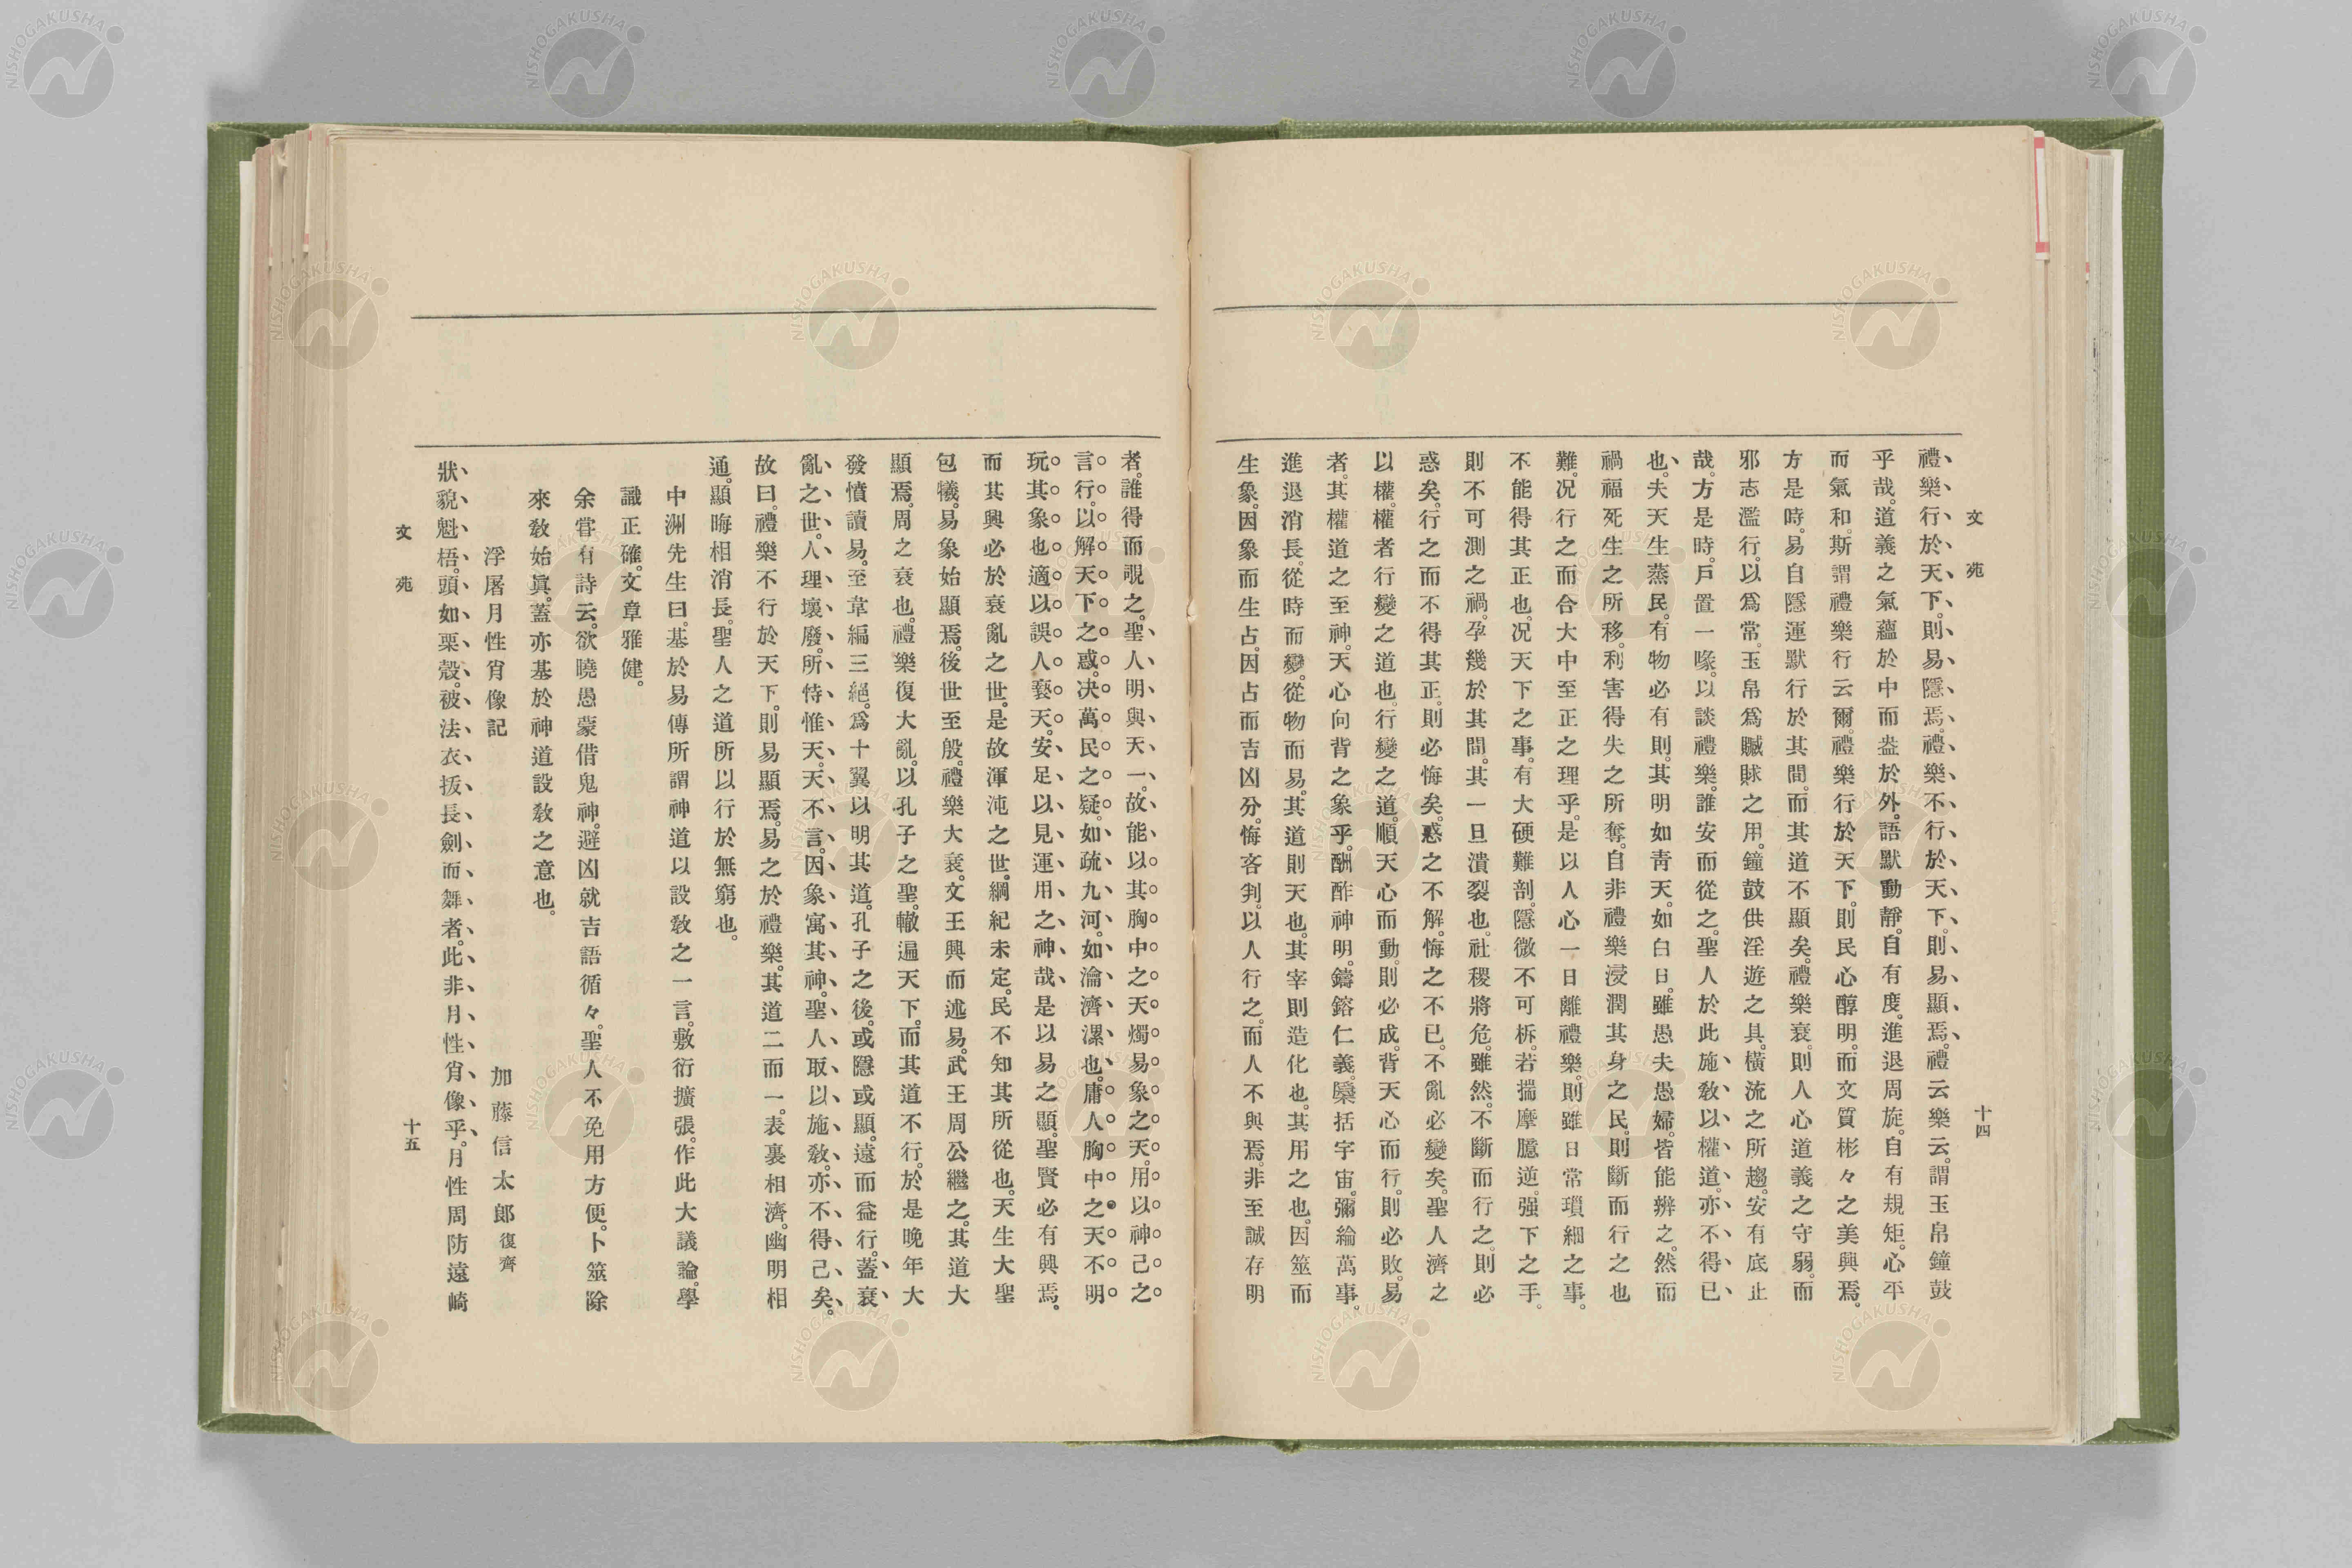 文苑
十四
禮樂行於天下。則易隱焉。禮樂不行於天下。則易顯焉。禮云樂云。謂玉帛鐘鼓
乎哉。道義之氣蘊於中而盎於外。語默動靜。自有度。進退周旋。自有規矩。心平
而氣和。斯謂禮樂行云爾。禮樂行於天下。則民心醇明。而文質彬々之美興焉。
方是時。易自隱運默行於其間。而其道不顯矣。禮樂衰。則人心道義之守弱。而
邪志濫行。以爲常。玉帛爲贓賕之用。鐘鼓供淫遊之具。橫流之所趨。安有底止
哉。方是時。戶置一喙。以談禮樂。誰安而從之。聖人於此施敎以權道。亦不得已
也。夫天生蒸民。有物必有則。其明如靑天。如白日。雖愚夫愚婦。皆能辨之。然而
禍福死生之所移。利害得失之所奪。自非禮樂浸潤其身之民。則斷而行之也
難。况行之而合大中至正之理乎。是以人心一日離禮樂。則雖日常瑣細之事。
不能得其正也。况天下之事。有大硬難剖。隱微不可柝。若揣摩臆逆。强下之手。
則不可測之禍。孕幾於其間。其一旦潰裂也。社稷將危。雖然。不斷而行之。則必
惑矣。行之而不得其正。則必悔矣。惑之不解。悔之不已。不亂必變矣。聖人濟之
以權。權者行變之道也。行變之道。順天心而動。則必成。背天心而行。則必敗。易
者。其權道之至神。天心向背之象乎。酬酢神明。鑄鎔仁義。檃括宇宙。彌綸萬事。
進退消長。從時而變。從物而易。其道則天也。其宰則造化也。其用之也。因筮而
生象。因象而生占。因占而吉凶分。悔吝判。以人行之。而人不與焉。非至誠存明
者。誰得而覘之。聖人明與天一。故能以其胸中之天。燭易象之天。用以神己之
言行。以解天下之惑。决萬民之疑。如疏九河。如瀹濟漯也。庸人胸中之天不明
玩其象也。適以誤人褻天。安足以見運用之神哉。是以易之顯。聖賢必有興焉。
而其興必於衰亂之世。是故渾沌之世。綱紀未定。民不知其所從也。天生大聖
包犧。易象始顯焉。後世至殷。禮樂大衰。文王興而述易。武王周公繼之。其道大
顯焉。周之衰也。禮樂復大亂。以孔子之聖。轍遍天下。而其道不行。於是晚年大
發憤讀易。至韋編三絕。爲十翼以明其道。孔子之後。或隱或顯。遠而益行。蓋衰
亂之世。人理壞廢。所恃惟天。天不言。因象寓其神。聖人取以施敎。亦不得已矣。
故曰。禮樂不行於天下。則易顯焉。易之於禮樂。其道二而一。表裏相濟。幽明相
通。顯晦相消長。聖人之道所以行於無窮也。
中洲先生曰。基於易傳所謂神道以設敎之一言。敷衍擴張。作此大議論。學
識正確。文章雅健。
余嘗有詩云。欲曉愚蒙借鬼神。避凶就吉語循々。聖人不免用方便。卜筮除
來敎始眞。蓋亦基於神道設敎之意也。
浮屠月性肖像記
加藤信太郎 復齊
狀貌魁梧。頭如栗殼。被法衣。拔長劍而舞者。此非月性肖像乎。月性周防遠崎
文苑
十五